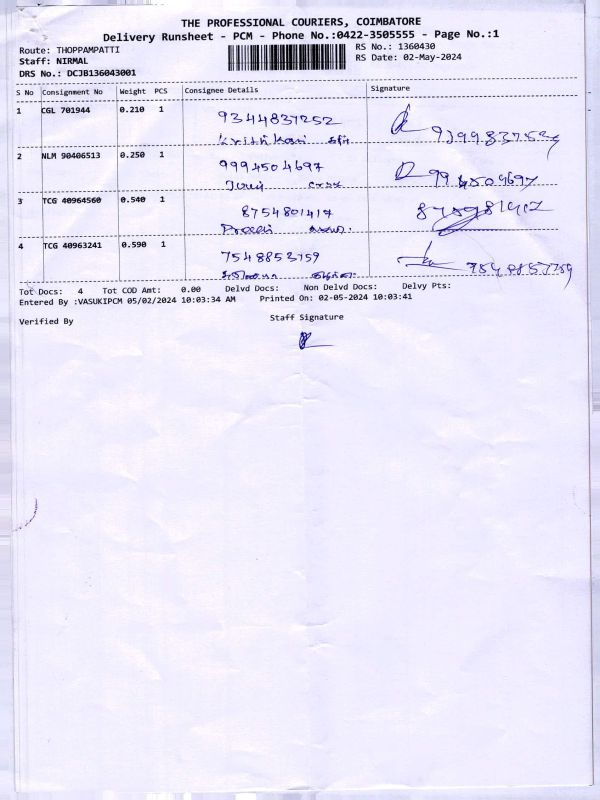 THE PROFESSIONAL COURIERS, COIMBATORE
Delivery Runsheet - PCM - Phone No.:0422-3505555 - Page No.:1
Route: THOPPAMPATTI RS No.: 1360430
Staff: NIRMAL RS Date: 02-May-2024
DRS No.: DCJB136043001
S No Consignment No Weight PCS Consignee Details Signature
1 CGL 701944 0.210 1 9344837252
2 NLM 90406513 0.250 1 9994504697
3 TCG 40964560 0.540 1 8754801417
4 TCG 40963241 0.590 1 7548853759
Tot Docs: 4 Tot COD Amt: 0.00 Delvd Docs: Non Delvd Docs: Delvy Pts:
Entered By :VASUKIPCM 05/02/2024 10:03:34 AM Printed On: 02-05-2024 10:03:41
Verified By Staff Signature